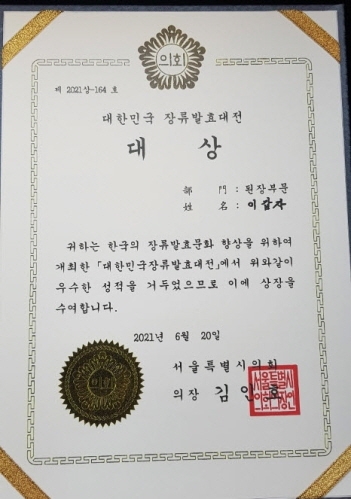 의회
제 2021상-164 호
대한민국 장류발효대전
대 상
部 門 : 된장부문
姓 名 : 이갑자
귀하는 한국의 장류발효문화 향상을 위하여
개최한 「대한민국장류발효대전」에서 위와같이
우수한 성적을 거두었으므로 이에 상장을
수여합니다.
2021년 6월 20일
서울특별시의회
의장 김인호
의회
서울특별시
의회의장인